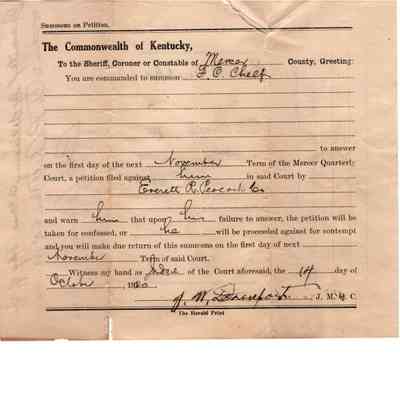 Summons on Petition.
The Commonwealth of Kentucky,
To the Sheriff, Coroner or Constable of Mercer County, Greeting:
You are commanded to summon F. C. Chelf
to answer
on the first day of the next November Term of the Mercer Quarterly
Court, a petition filed against him in said Court by
Everett R. Peacock Co
and warn him that upon his failure to answer, the petition will be
taken for confessed, or he will be proceeded against for contempt
and you will make due return of this summons on the first day of next
November Term of said Court.
Witness my hand as Judge of the Court aforesaid, the 14 day of
October 19
J. W. Davenport J. M. Q. C.
The Herald Print